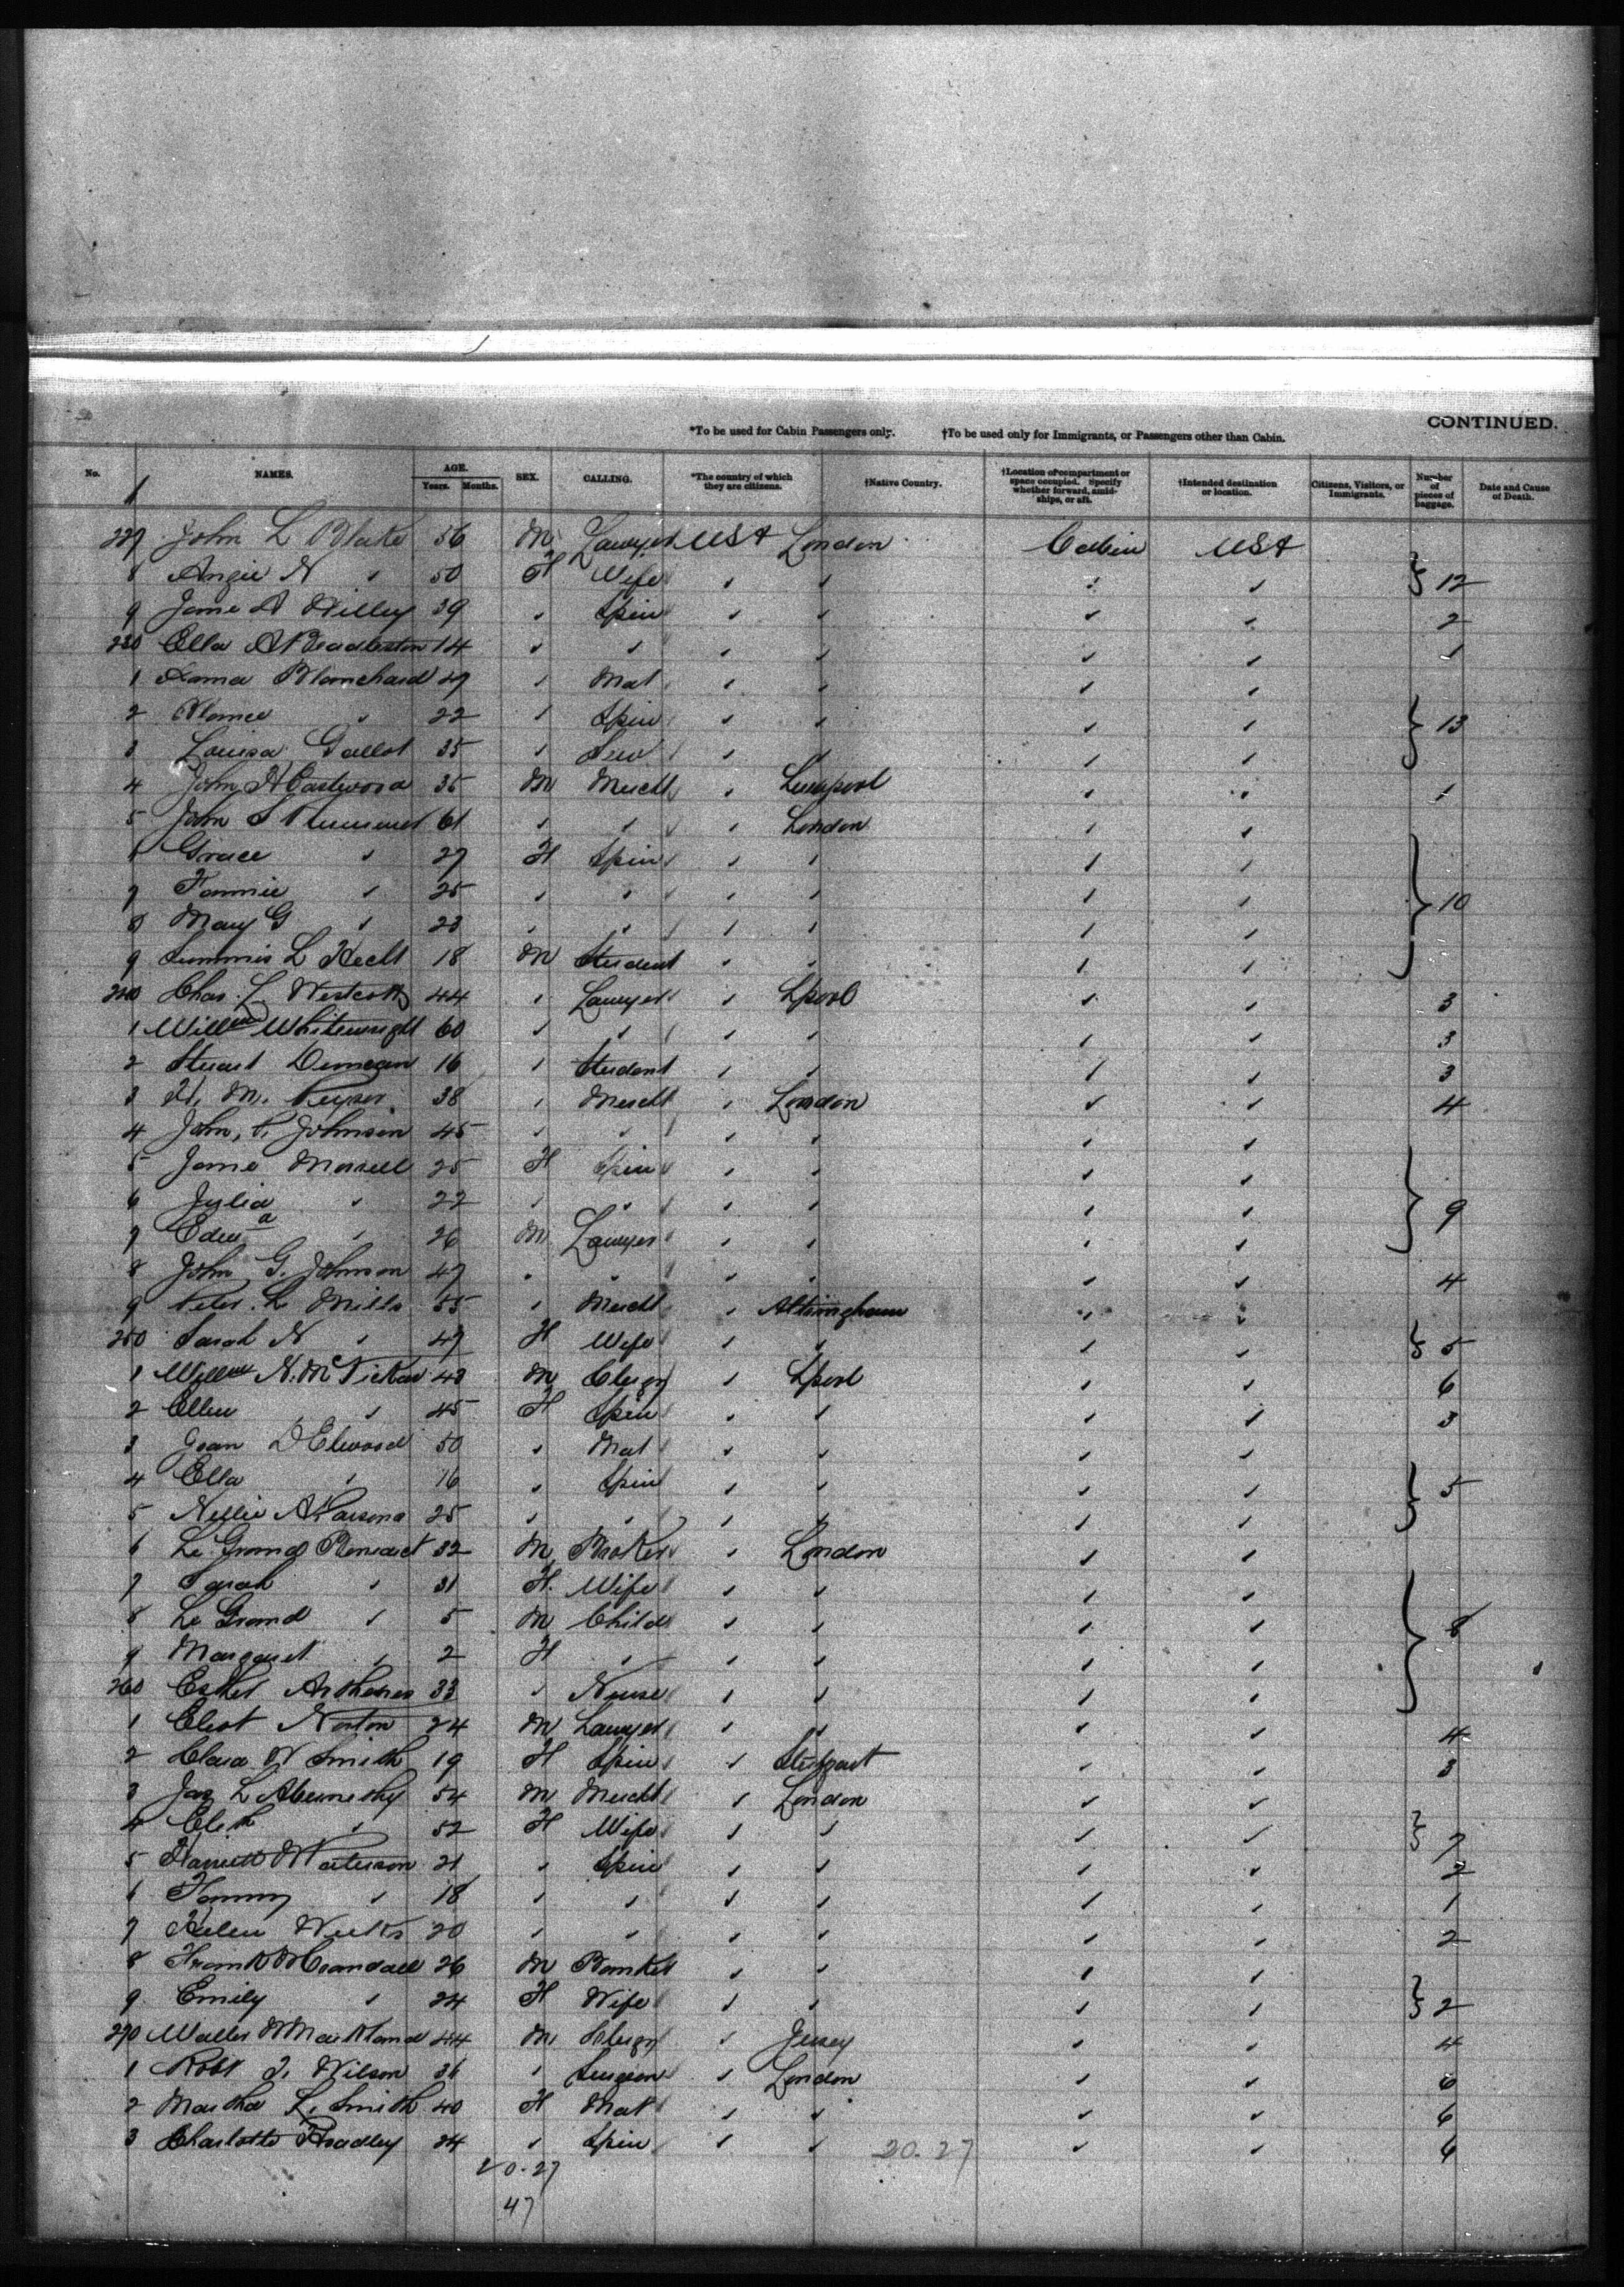 CONTINUED.
*To be used for Cabin Passengers only. †To be used only for Immigrants, or Passengers other than Cabin.
No. NAMES. AGE. Years. Months. SEX. CALLING. *The country of which they are citizens. †Native Country. †Location of compartment or space occupied. Specify whether forward, amidships, or aft. †Intended destination or location. Citizens, Visitors, or Immigrants. Number of pieces of baggage. Date and Cause of Death.
227 John L Blake 56 M Lawyer USA London Cabin USA
8 Angie N " 50 F Wife " " " " } 12
9 Jane A Willey 39 " Spin " " " " 2
230 Ella A Beadleston 14 " " " " " " 1
1 Anna Blanchard 47 " Mat " " " "
2 " 22 " Spin " " " " } 13
3 Louisa Gallot 35 " " " " "
4 John H Eastwood 35 M Mercht " Liverpool " " 1
5 John S 61 " " " London " "
6 Grace " 27 F Spin " " " "
7 Fannie " 25 " " " " " " } 10
8 Mary G " 23 " " " " " "
9 L Hecht 18 M Student " " " "
240 Chas. L. Westcott 44 " Lawyer " Lpool " " 3
1 Willm Whitewright 60 " " " " " " 3
2 Stuart Duncan 16 " Student " " " " 3
3 H. M. Keyser 38 " Mercht " London " " 4
4 John, C. Johnson 45 " " " " " "
5 Jane Morrell 25 F Spin " " " "
6 Julia " 22 " " " " " " } 9
7 Edw " 26 M Lawyer " " " "
8 John G. Johnson 47 " " " " " " 4
9 Peter L Mills 55 " Mercht " Altringham " "
250 Sarah N " 47 F Wife " " " " } 5
1 Willm N. McVickar 43 M Clergy " Lpool " " 6
2 Ellen " 45 F Spin " " " " 3
3 Jean D Elwood 50 " Mat " " " "
4 Ella " 16 " Spin " " " " } 5
5 Nellie A Parsons 25 " " " " " "
6 Le Grand Benedict 32 M Broker " London " "
7 Sarah " 31 F. Wife " " " "
8 Le Grand " 5 M Child " " " " } 8
9 Margaret " 2 F " " " " "
260 Esther 33 " Nurse " " " "
1 Eliot Norton 24 M Lawyer " " " " 4
2 Clara W Smith 19 F Spin " Stuttgart " " 3
3 Jas L Abernethy 54 M Mercht " London " "
4 Elizth " 52 F Wife " " " " } 7
5 Harriett Waterson 21 " Spin " " " " 2
6 Fanny " 18 " " " " " " 1
7 Helen Weeks 20 " " " " " " 2
8 Frank M Crandall 26 M Banker " " " "
9 Emily " 24 F Wife " " " " } 2
270 Walter M Markland 44 M Clergy " Jersey " " 4
1 Robt J. Wilson 36 " Surgeon " London " " 6
2 Martha L. Smith 40 F Mat " " " " 6
3 Charlotte Bradley 24 " Spin " " " " 6
20-27 20.27
47